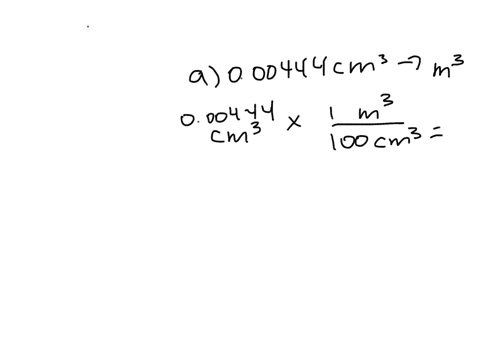 a) 0.00444 cm³ → m³
0.00444 cm³ × 1 m³ / 100 cm³ =